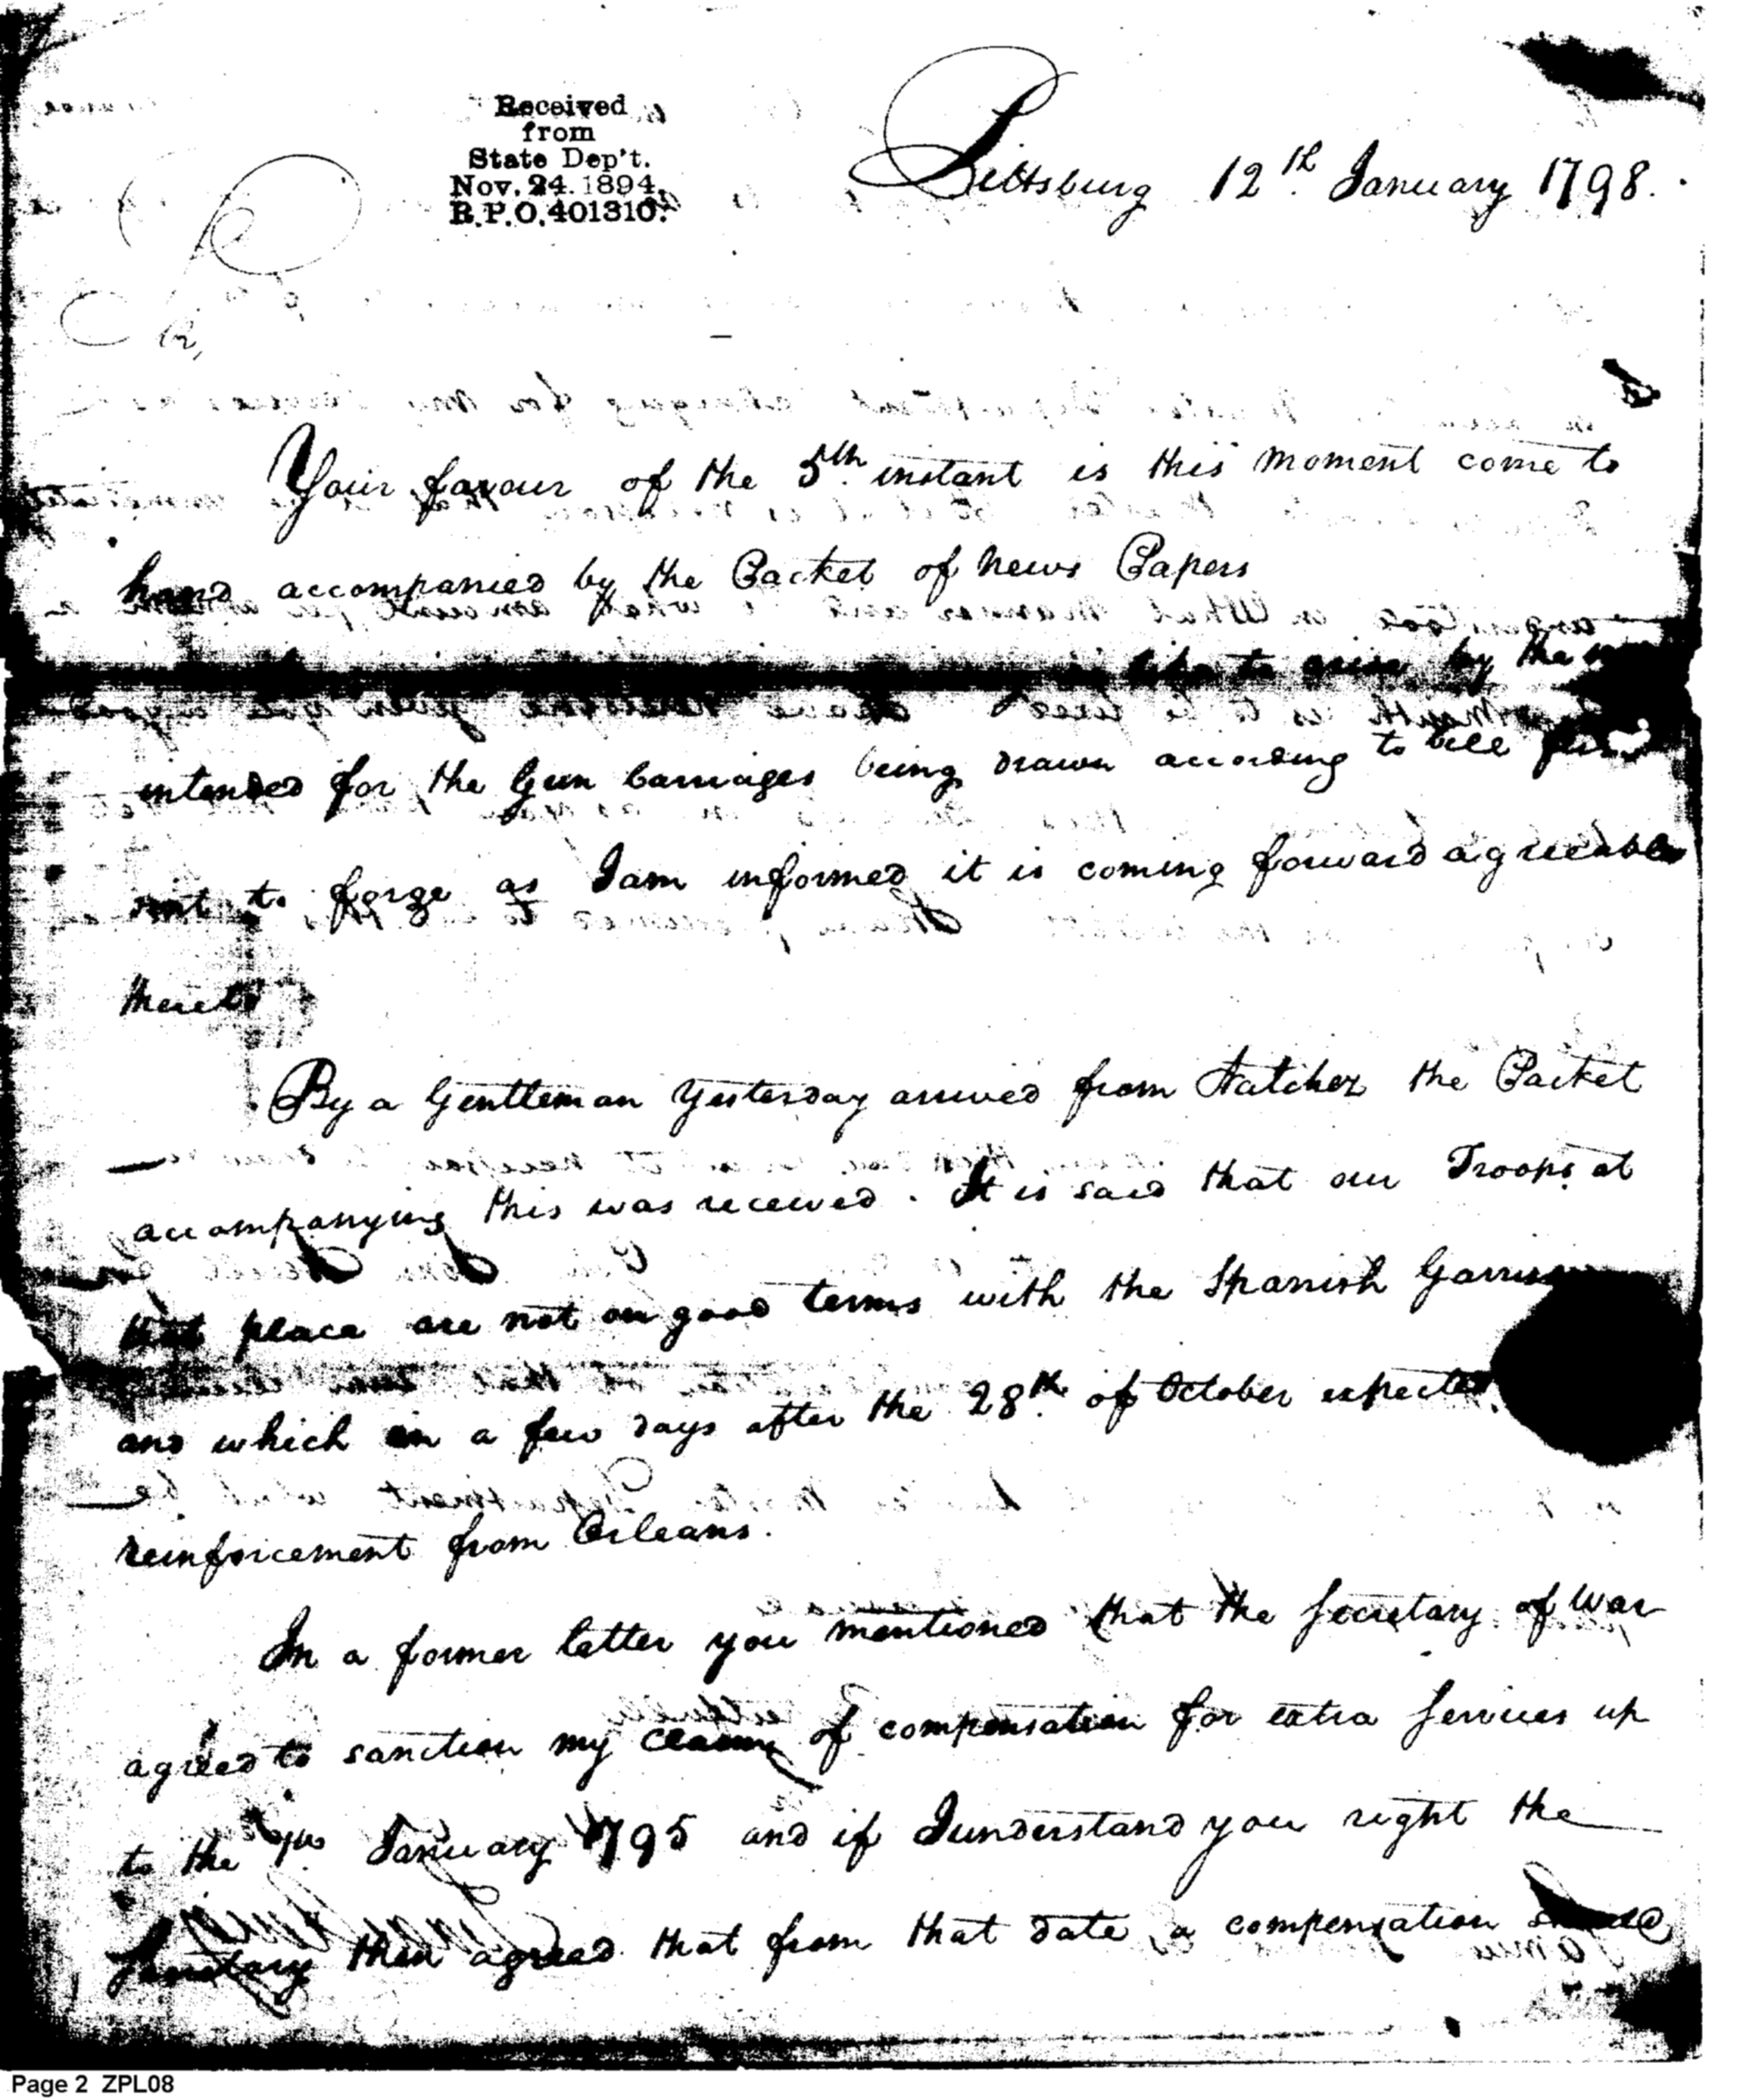 Received
from
State Dep't.
Nov. 24. 1894.
R.P.O. 401310.
Pittsburg 12th January 1798.
Your favour of the 5th instant is this moment come to
hand accompanied by the Packet of News Papers
to arise by the
intended for the Gun Carriages being drawn according to bill
sent to forge as I am informed it is coming forward agreeable
thereto
By a Gentleman yesterday arrived from Natchez the Packet
accompanying this was received. It is said that our Troops at
that place are not on good terms with the Spanish Garrison
and which in a few days after the 28th of October expected
reinforcement from Orleans.
In a former letter you mentioned that the Secretary of War
agreed to sanction my claim of compensation for extra Services up
to the January 1795 and if I understand you right the
Secretary then agreed that from that date a compensation should
Page 2 ZPL08